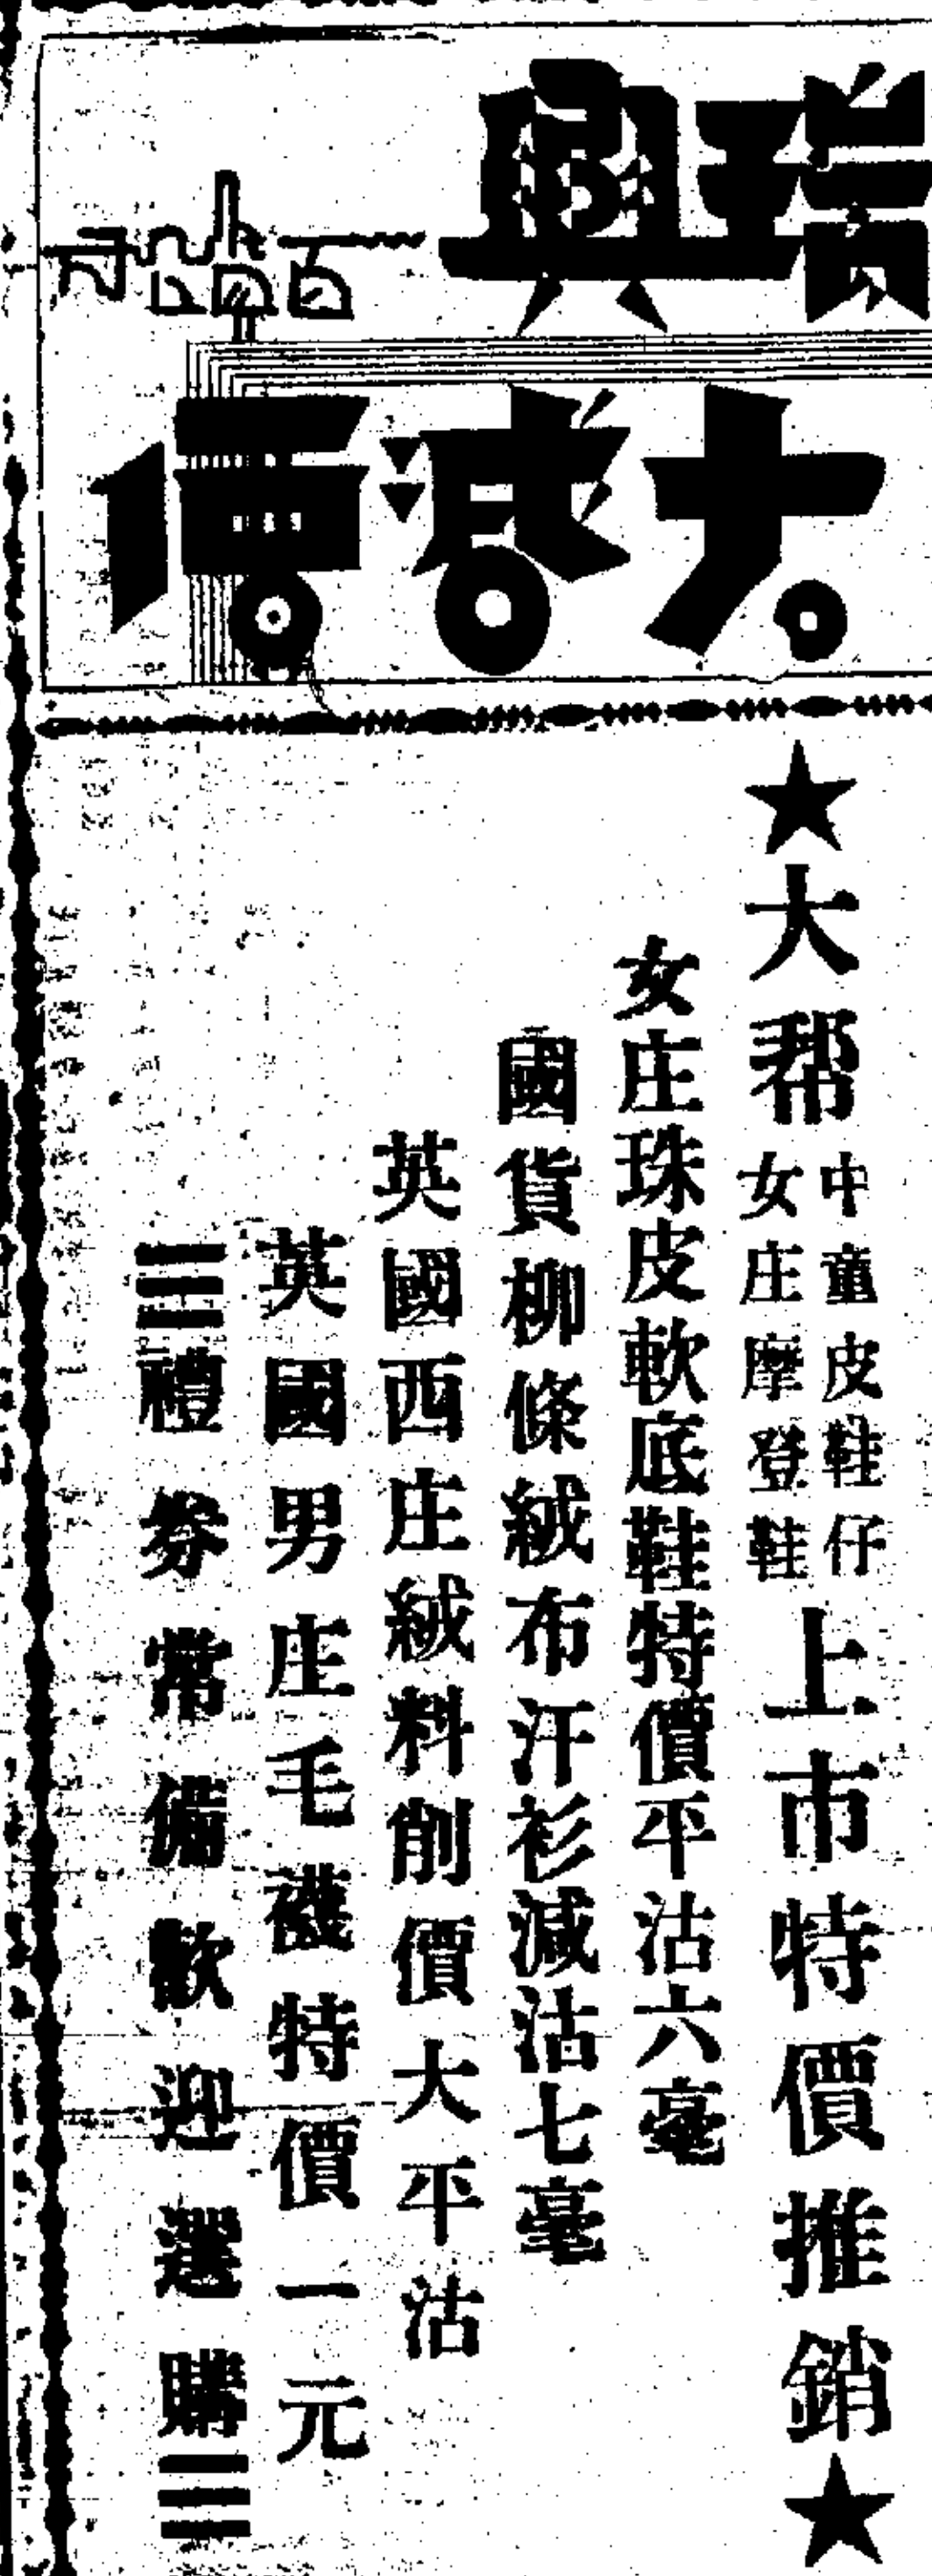 瑞興
百貨公司
大減價
★大帮
中童皮鞋仔
女庄摩登鞋
上市特價推銷★
女庄珠皮軟底鞋特價平沽六毫
國貨柳條絨布汗衫減沽七毫
英國西庄絨料削價大平沽
英國男庄毛襪特價一元
三禮券常備歡迎選購三